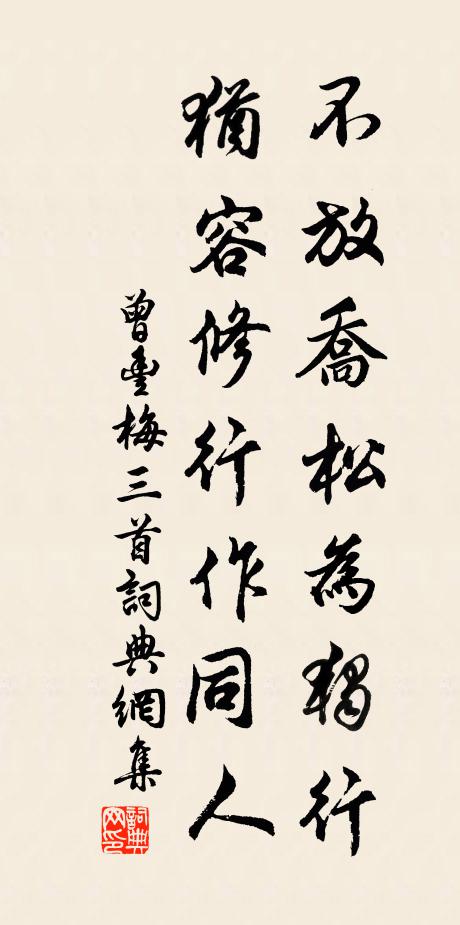 不放喬松為獨行
猶容修行作同人
曾豐梅三首詞典網集
詞典網印